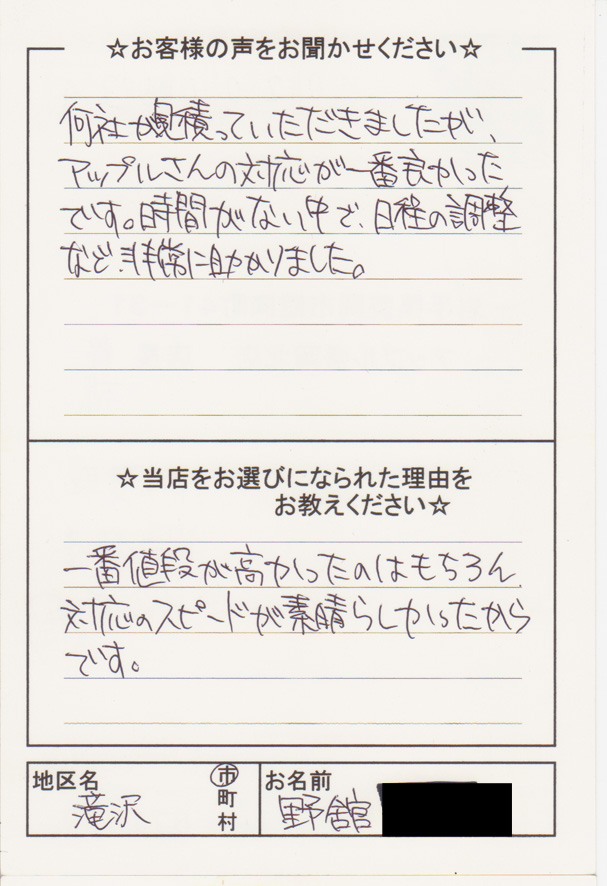 ☆お客様の声をお聞かせください☆
何社か見積っていただきましたが、
アップルさんの対応が一番良かった
です。時間がない中で、日程の調整
など、非常に助かりました。
☆当店をお選びになられた理由を
お教えください☆
一番値段が高かったのはもちろん、
対応のスピードが素晴らしかったから
です。
地区名 滝沢 市
町
村
お名前 野舘